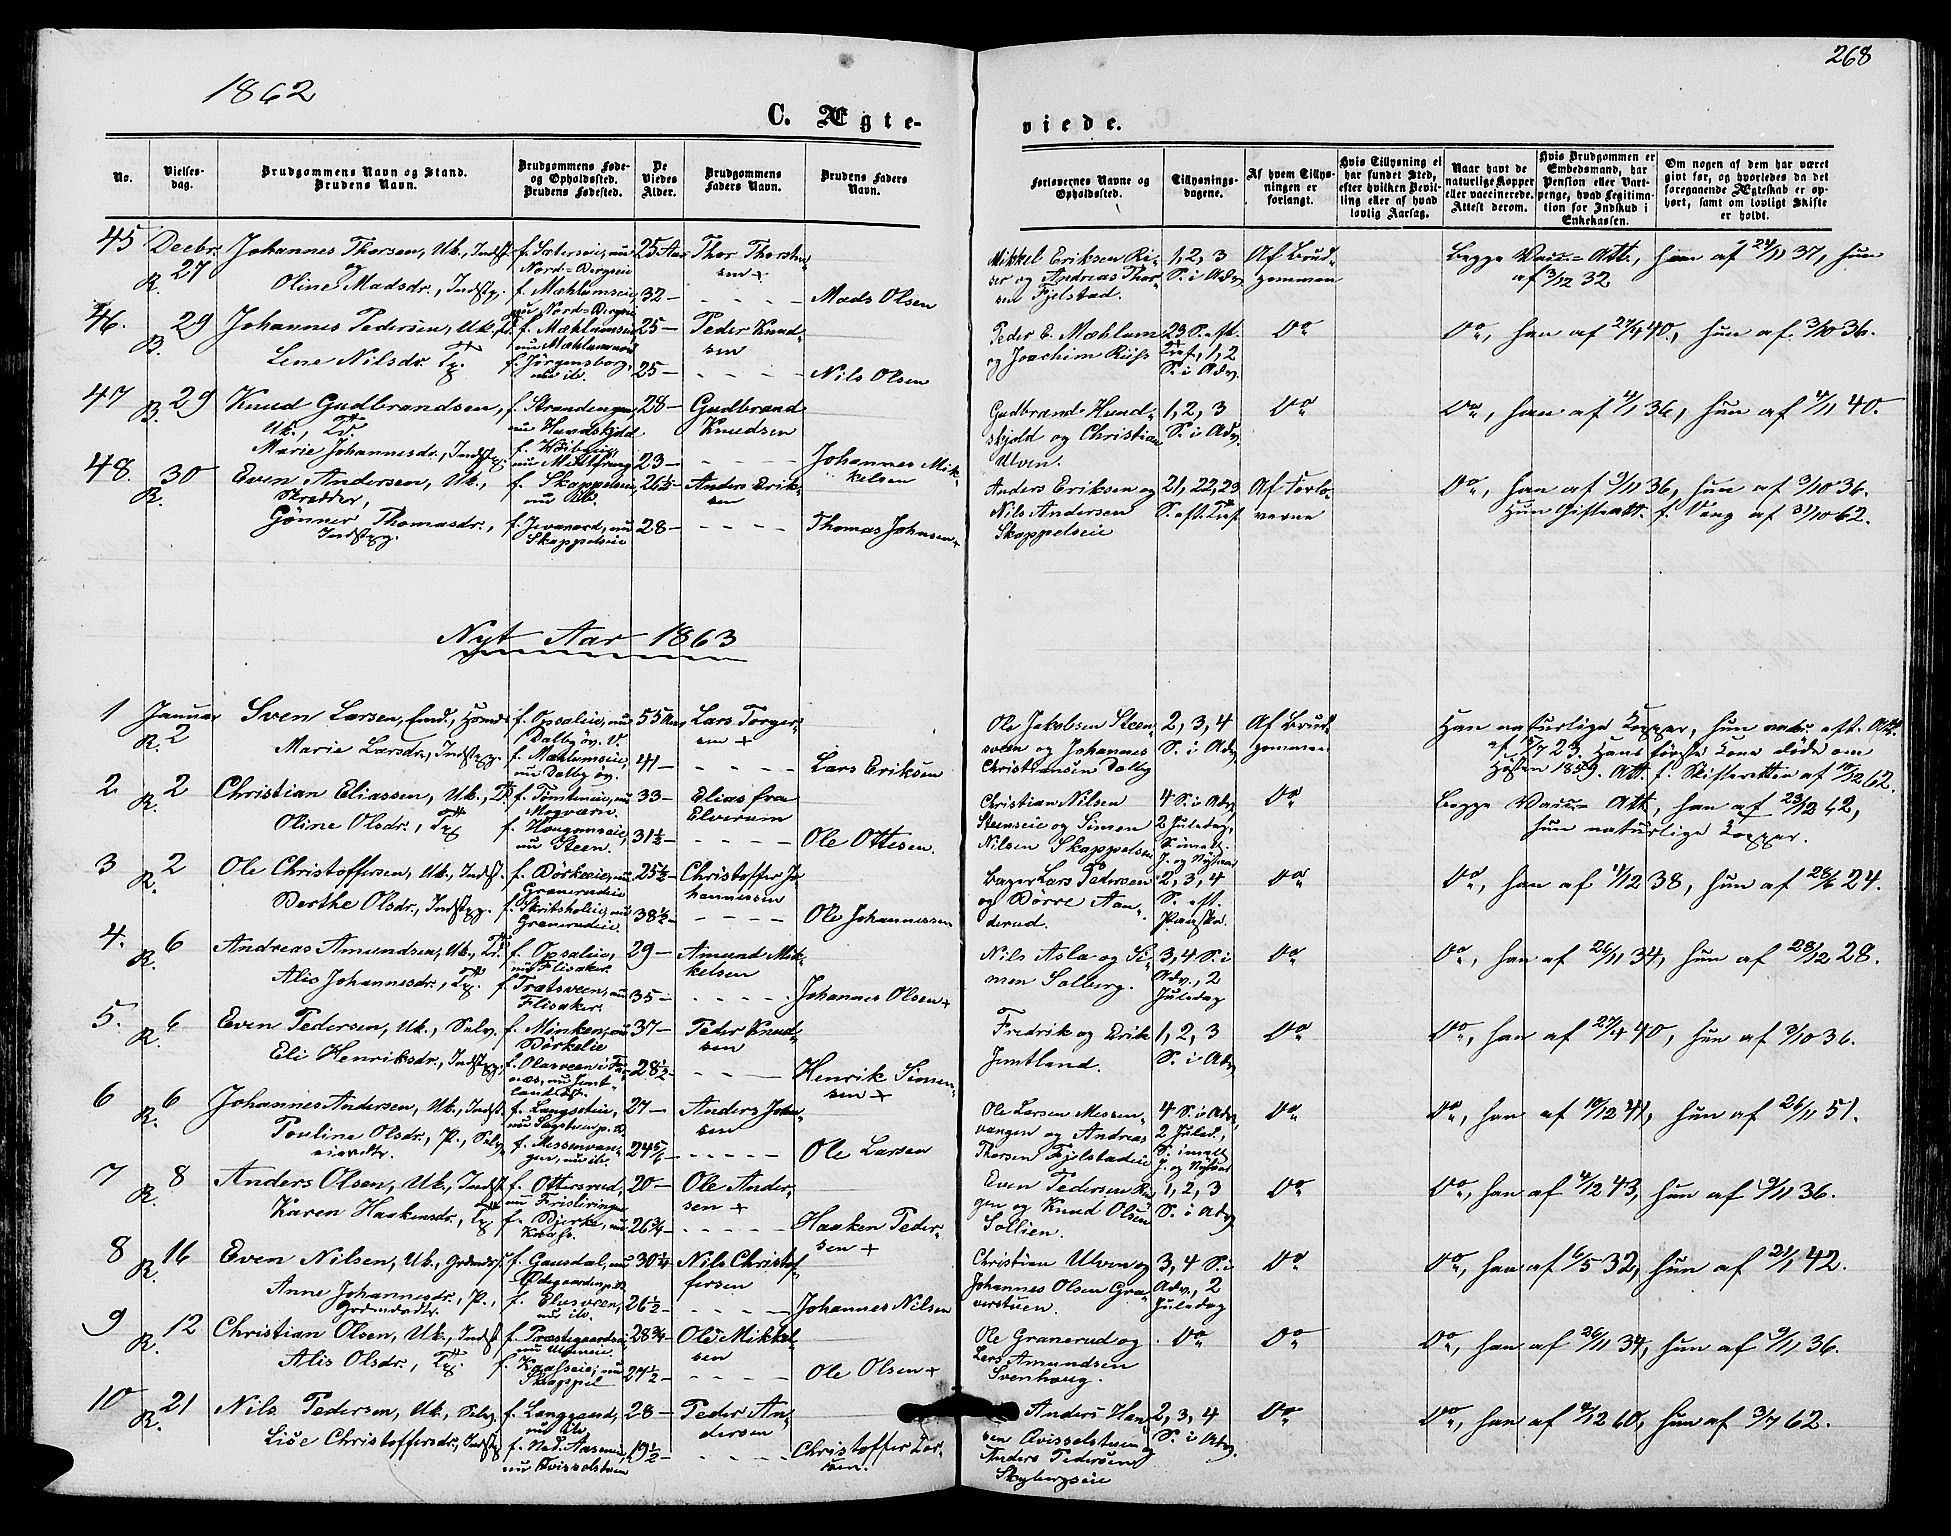 268
1862
C. Ægte-
viede.
No.
Vielses-
dag.
Brudgommens Navn og Stand.
Brudens Navn.
Brudgommens Føde-
og Opholdssted.
Brudens Fødested.
De
Viedes
Alder.
Brudgommens
Faders Navn.
Brudens Faders
Navn.
Forlovernes Navne og
Opholdssted.
Tillysnings-
dagene.
Af hvem Tillys-
ningen er
forlangt.
Hvis Tillysning ei
har fundet Sted,
efter hvilken Bevil-
ling eller af hvad
lovlig Aarsag.
Naar havt de
naturlige Kopper
eller vaccinerede.
Attest derom.
Hvis Brudgommen er
Embedsmand, har
Pension eller Vart-
penge, hvad Legitima-
tion for Indskud i
Enkekassen.
Om nogen af dem har været
gift før, og hvorledes da det
foregaaende Ægteskab er op-
hørt, samt om lovligt Skifte
er holdt.
45 Decbr. R. 27
Johannes Thorsen, Uk., Indst.
og
Oline Madsdr., Indstpg.
f. Sæterseie, nu
Nord-Bergseie
f. Mæhlumseie,
nu Nord-Bergseie
25 Aar
32 —
Thor Thorsten-
sen +
Mads Olsen
Mikkel Eriksen Ri-
ser og Andreas Thor-
sen Fjelstad.
1, 2, 3
S. i Adv.
Af Brud-
gommen
Begge Vacc.- Att., han af 24/11 37, hun
af 3/12 32
46. B. 29
Johannes Pedersen, Uk.
Lene Nilsdr. Tj.
f. Mæhlumseie
f. Jørgensborg,
nu ib.
25 —
25 —
Peder Knud-
sen
Nils Olsen
Peder E. Mæhlum
og Joachim
23 S. eft.
Tref., 1, 2
S. i Adv.
Do
Do, han af 27/4 40, hun af 9/10 36.
47 B. 29
Knud Gudbrandsen,
Uk.,
Marie Johannesdr., Indstpg.
f. Strandengen,
nu Hundskjold
28 —
23 —
Gudbrand
Knudsen
Johannes Mik-
kelsen
Gudbrand Hund-
skjold og Christian
Ulven.
1, 2, 3
S. i Adv.
Do
Do, han af 4/11 36, hun af 4/11 40.
48. R. 30
Even Andersen, Uk.,
Skrædder,
Gønner Thomasdr.,
Indstpg.
f. Skappelseie,
nu ib.
f. Jevanord, nu
Skappelseie
26½ —
28 —
Anders Erik-
sen
Thomas Johnsen +
Anders Eriksen og
Nils Andersen
Skappelseie
21, 22, 23
S. eft. Tref.
Af Forlo-
verne
Do, han af 9/11 36, hun af 9/10 36.
Hun Gifteatt. f. Vang af 31/10 62.
Nyt Aar 1863
1 Januar R. 2
Sven Larsen, Enkd., Huusmd.
Marie Larsdr., Indstpg.
f. Opsaleie, nu
Dalby øv.
f. Mæhlumseie,
nu Dalby øv.
55 Aar
41 —
Lars Torger-
sen +
Lars Eriksen
Ole Jakobsen Steen-
sveen og Johannes
Christiansen Dalby
2, 3, 4
S. i Adv.
Af Brud-
gommen
Han naturlige Kopper, hun vacc. eft. Att.
af 15/7 23. Hans første Kone døde om
Høsten 1859. Att. f. Skifteretten af 10/12 62.
2 R. 2
Christian Eliassen, Uk.,
Oline Olsdr., Tj.
f. Tomteneie, nu
f. Hougomseie,
nu Steen.
33 —
31½ —
Elias fra
Elverum
Ole Ottesen.
Christian Nilsen
Steenseie og Simen
Nilsen Skappelseie
4 S. i Adv.
2 Juledag,
S. imell.
J. og Nytaar
Do
Begge Vacc.- Att., han af 23/12 42,
hun naturlige Kopper.
3 R. 2
Ole Christoffersen, Uk., Indst.
Berthe Olsdr., Indstpg.
f. Børkeeie, nu
Graneruudeie
f. Skritsholeie, nu
Granerudeie.
25½ —
38½ —
Christoffer Jo-
hannessen
Ole Johannessen
Bager Lars Pedersen
og Børre Aan-
derud.
2, 3, 4
S. eft.
Paaske.
Do
Do, han af 1/12 38, hun af 28/6 24.
4. R. 6
Andreas Amundsen, Uk.,
Alis Johannesdr., Tj.
f. Opsaleie,
nu Flisaker.
f. Trætsveen, nu
Flisaker.
29 —
35 —
Amund Mik-
kelsen
Johannes Olsen +
Nils Asla og Si-
men Solberg.
3, 4 S. i
Adv., 2
Juledag
Do
Do, han af 26/11 34, hun af 28/12 28.
5. R. 6
Even Pedersen, Uk., Selv.
Eli Henriksdr., Indstpg.
f. Minken, nu
Børkelie
f. Olasveen i Fur-
næs, nu Jemt-
land
37 —
28½ —
Peder Knud-
sen
Henrik Simen-
sen +
Fredrik og Erik
Jemtland.
1, 2, 3
S. i Adv.
Do
Do, han af 27/4 40, hun af 9/10 36.
6 R. 6
Johannes Andersen, Uk., Indst.
Pouline Olsdr., P., Selv-
eierdtr.
f. Langseteie,
f. Messenvan-
gen, nu ib.
27 —
24 5/6 —
Anders John-
sen
Ole Larsen
Ole Larsen Messen-
vangen og Andreas
Thorsen Fjelstadeie
4 S. i Adv.,
2 Juled.,
S. imell.
J. og Nytaar
Do
Do, han af 10/12 41, hun af 26/11 51.
7 R. 8
Anders Olsen, Uk., Indst.
Karen Haakensdr., Tj.
f. Ottersrud,
f. Bjerke, nu
20 —
26¾ —
Ole Ander-
sen +
Haaken Peder-
sen +
Even Pedersen Rin-
gen og Knud Olsen
Sollien.
1, 2, 3
S. i Adv.
Do
Do, han af 4/12 43, hun af 9/11 36.
8 R. 16
Even Nilsen, Uk., Grdmdss.
Anne Johannesdr., P.,
Grdmdsdtr.
f. Gausdal, nu
Ødegaarden p. R.
f. Elvesveen,
nu ib.
30¼
26½ —
Nils Christof-
fersen
Johannes Nilsen
Christian Ulven og
Johannes Olsen Gra-
verstuen.
3, 4 S. i
Adv., 2
Juledag
Do
Do, han af 6/5 32, hun af 21/1 42.
9 R. 12
Christian Olsen, Uk., Indst.
Alis Olsdr., Tj.
f. Præstegaardseie,
f. Kaalseie, nu
Skappel
28¾ —
27½ —
Ole Mikkel-
sen
Ole Olsen +
Ole Granerud og
Lars Amundsen
Svenhaug.
Do
Do
Do, han af 26/11 34, hun af 9/11 36.
10 R. 21
Nils Pedersen, Uk., Selv.
Lise Christoffersdr., Indstpg.
f. Langgaard,
nu ib.
f. Ned. Aasen,
nu Qvisselstuen
28 —
19½ —
Peder An-
dersen
Christoffer Lar-
sen.
Anders Han-
sen Qvisselstuen og
Anders Pedersen
Skybergseie
2, 3, 4
S. i Adv.
Do
Do, han af 4/12 60, hun af 3/7 62.